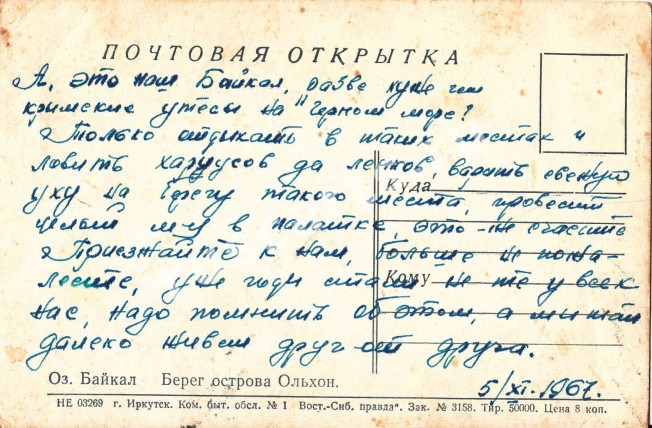 ПОЧТОВАЯ ОТКРЫТКА
А, это наш Байкал, разве хуже чем
крымские утесы на Черном море?
Только отдыхать в таких местах и
ловить харусов да ленков, варить свежую
уху на берегу такого места, провести
целый м-ц в палатке, это -не счастье
Приезжайте к нам, больше не пожа-
леете, уже годы стали не те у всех
нас, надо помнить об этом, а мы так
далеко живем друг от друга.
Куда
Кому
5/XI-1967.
Оз. Байкал Берег острова Ольхон.
НЕ 03269 г. Иркутск. Ком. быт. обсл. № 1 Вост.-Сиб. правда". Зак. № 3158. Тир. 50000. Цена 8 коп.